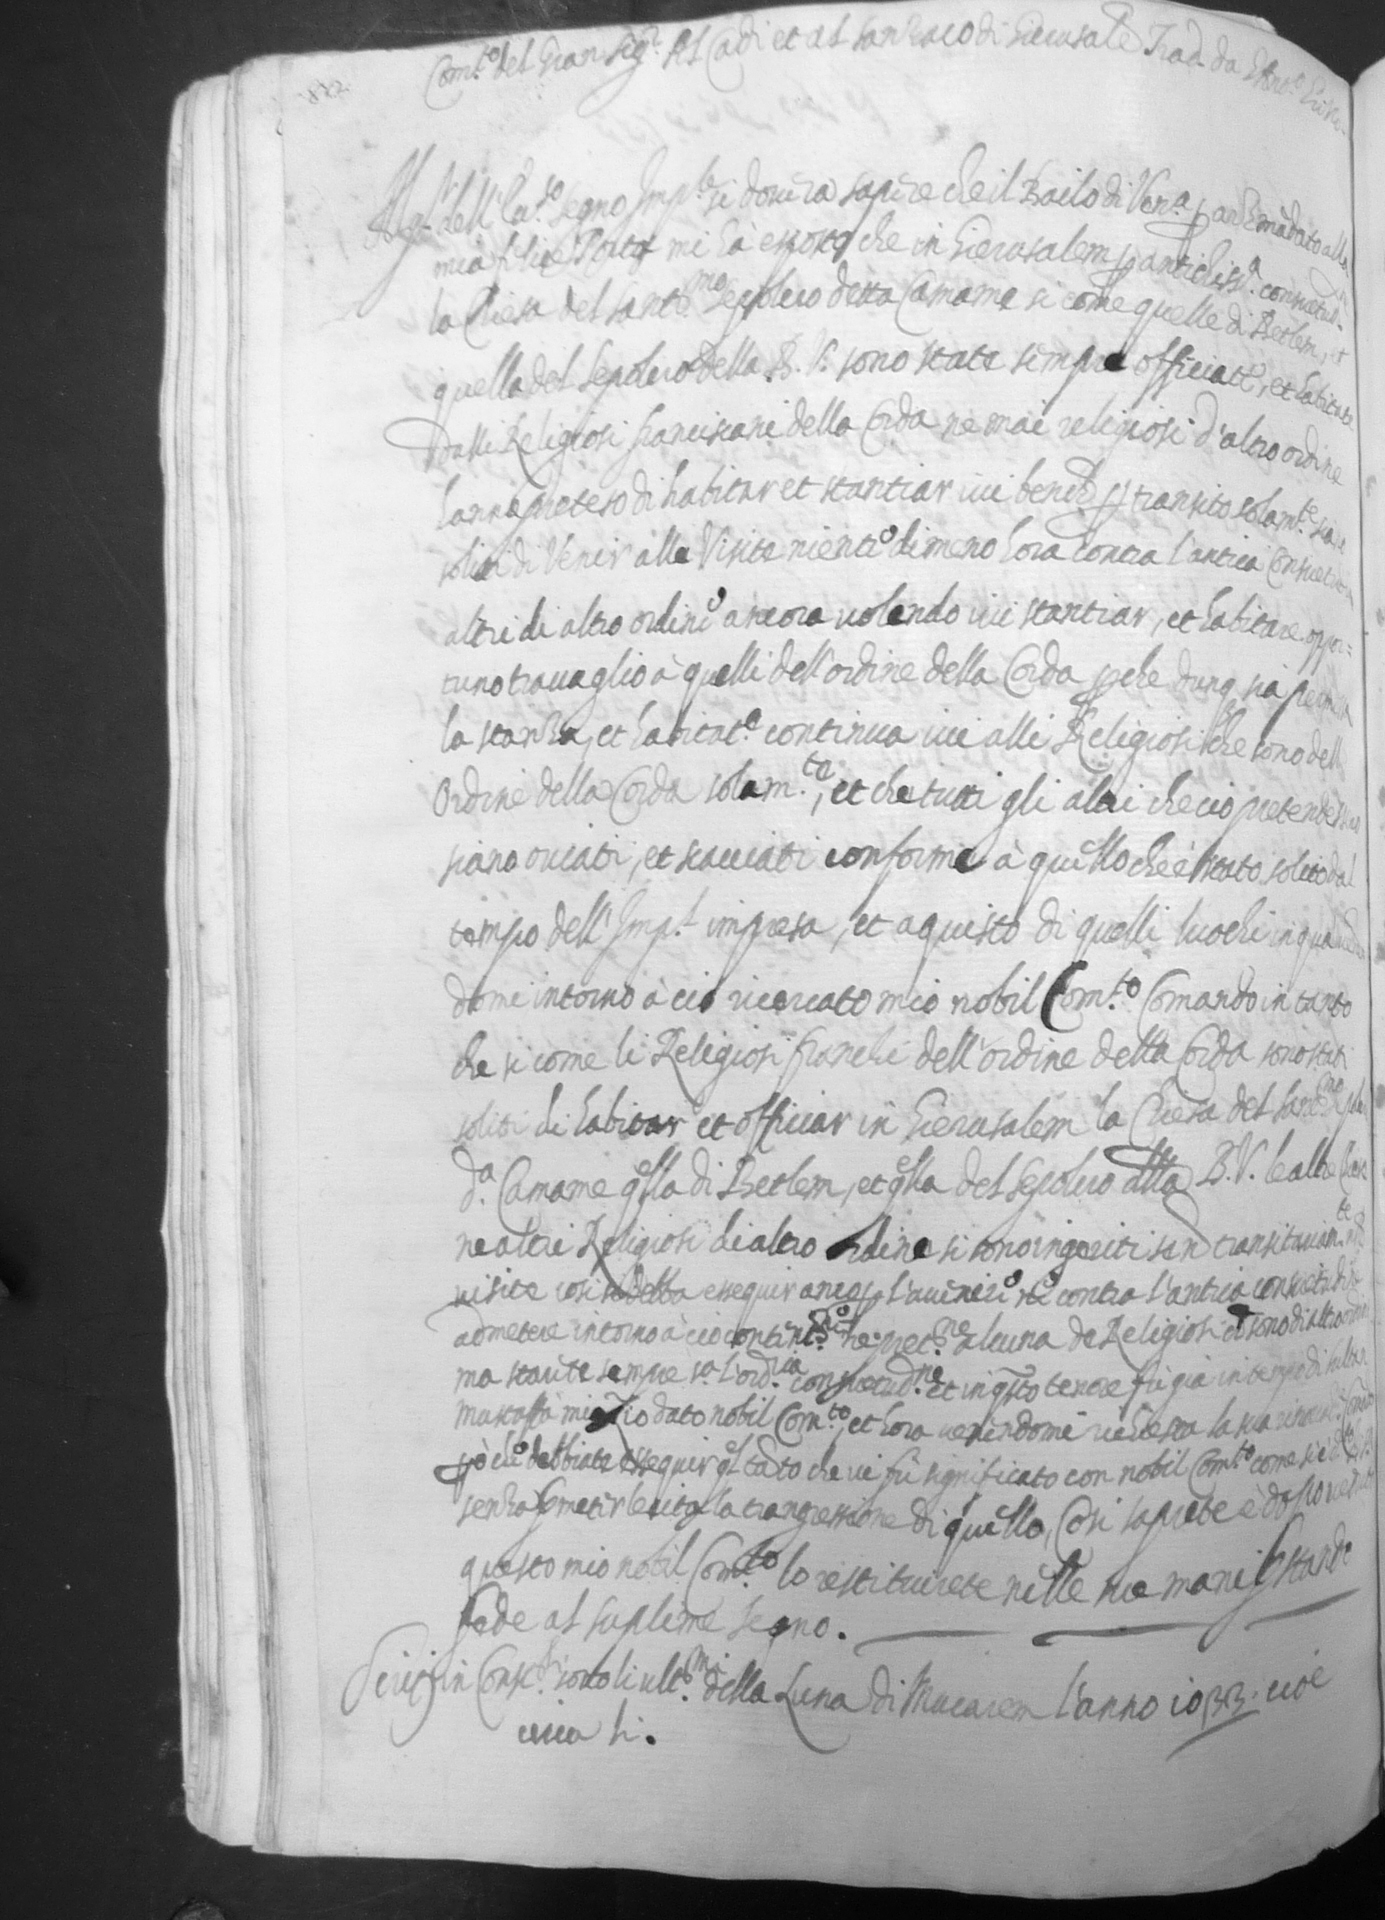 Com.to del Gran Sig.r Al Cadi et al Sanzaco di Gierusale Trad da
dell' Ecc.so segno Imp.le si dovera sapere che il Bailo di Ven.a p arz mãdato alla
mia felice Porta mi hà esposto che in Gierusalem p antichiss.a consuetud.
la Chiesa del Sant.mo Sepolcro detta Camame si come quelle di Betlem, et
quella del Sepolcro della B. V. sono state sempre officiate, et habitate
dalli Religiosi franciscani della Corda ne mai religiosi d'altro ordine
hanno preteso di habitar et stantiar ivi benche p transito solam.te siano
soliti di venir alle visite nientedimeno hora contra l'antica consuetud
altri di altro ordine ancora volendo ivi stantiar, et habitare appor=
tano travaglio à quelli dell'ordine della Corda pche dunq sia permessa
la stanza, et habitat.e continua ivi alli Religiosi che sono dell
Ordine della Corda solam.te, et che tutti gli altri che ciò pretendessero
siano cacciati, et scacciati conforme à quello che è stato solito dal
tempo dell' Imp.l impresa, et aquisto di quelli luochi in qua
domi intorno à ciò ricercato mio nobil Com.to Comando in tanto
che si come li Religiosi franchi dell'ordine della Corda sono stati
soliti di habitar et officiar in Gierusalem la Chiesa del Sant.mo
d.a Camame qlla di Betlem, et qlla del Sepolcro della B. V. le altre
ne altri Religiosi di altro ordine si sono ingeriti se nõ transitoriam.te
visite cosi si debba essequir anco p l'avenire ne contra l'antica consuetudine
admetere intorno à ciò ne pret.ne alcuna de Religiosi che sono di altro ordine
ma stante sempre consuetud.ne et in qsto tenore fù già in tempo di sultan
Mustaffà mio Zio dato nobil Com.to, et hora venendomi richiesta la sua
però che debbiate essequir qsl tãto che vi fù significato con nobil Com.to come si è
senza pmetter la trangressione di quello, Cosi sapiate è dopo veduto
questo mio nobil Com.to lo restituirete nelle sue mani pstando
fede al suplime segno.
Scritt in sotto li ult.mi della Luna di Mucarem l'anno 1033. cioè
circa li.